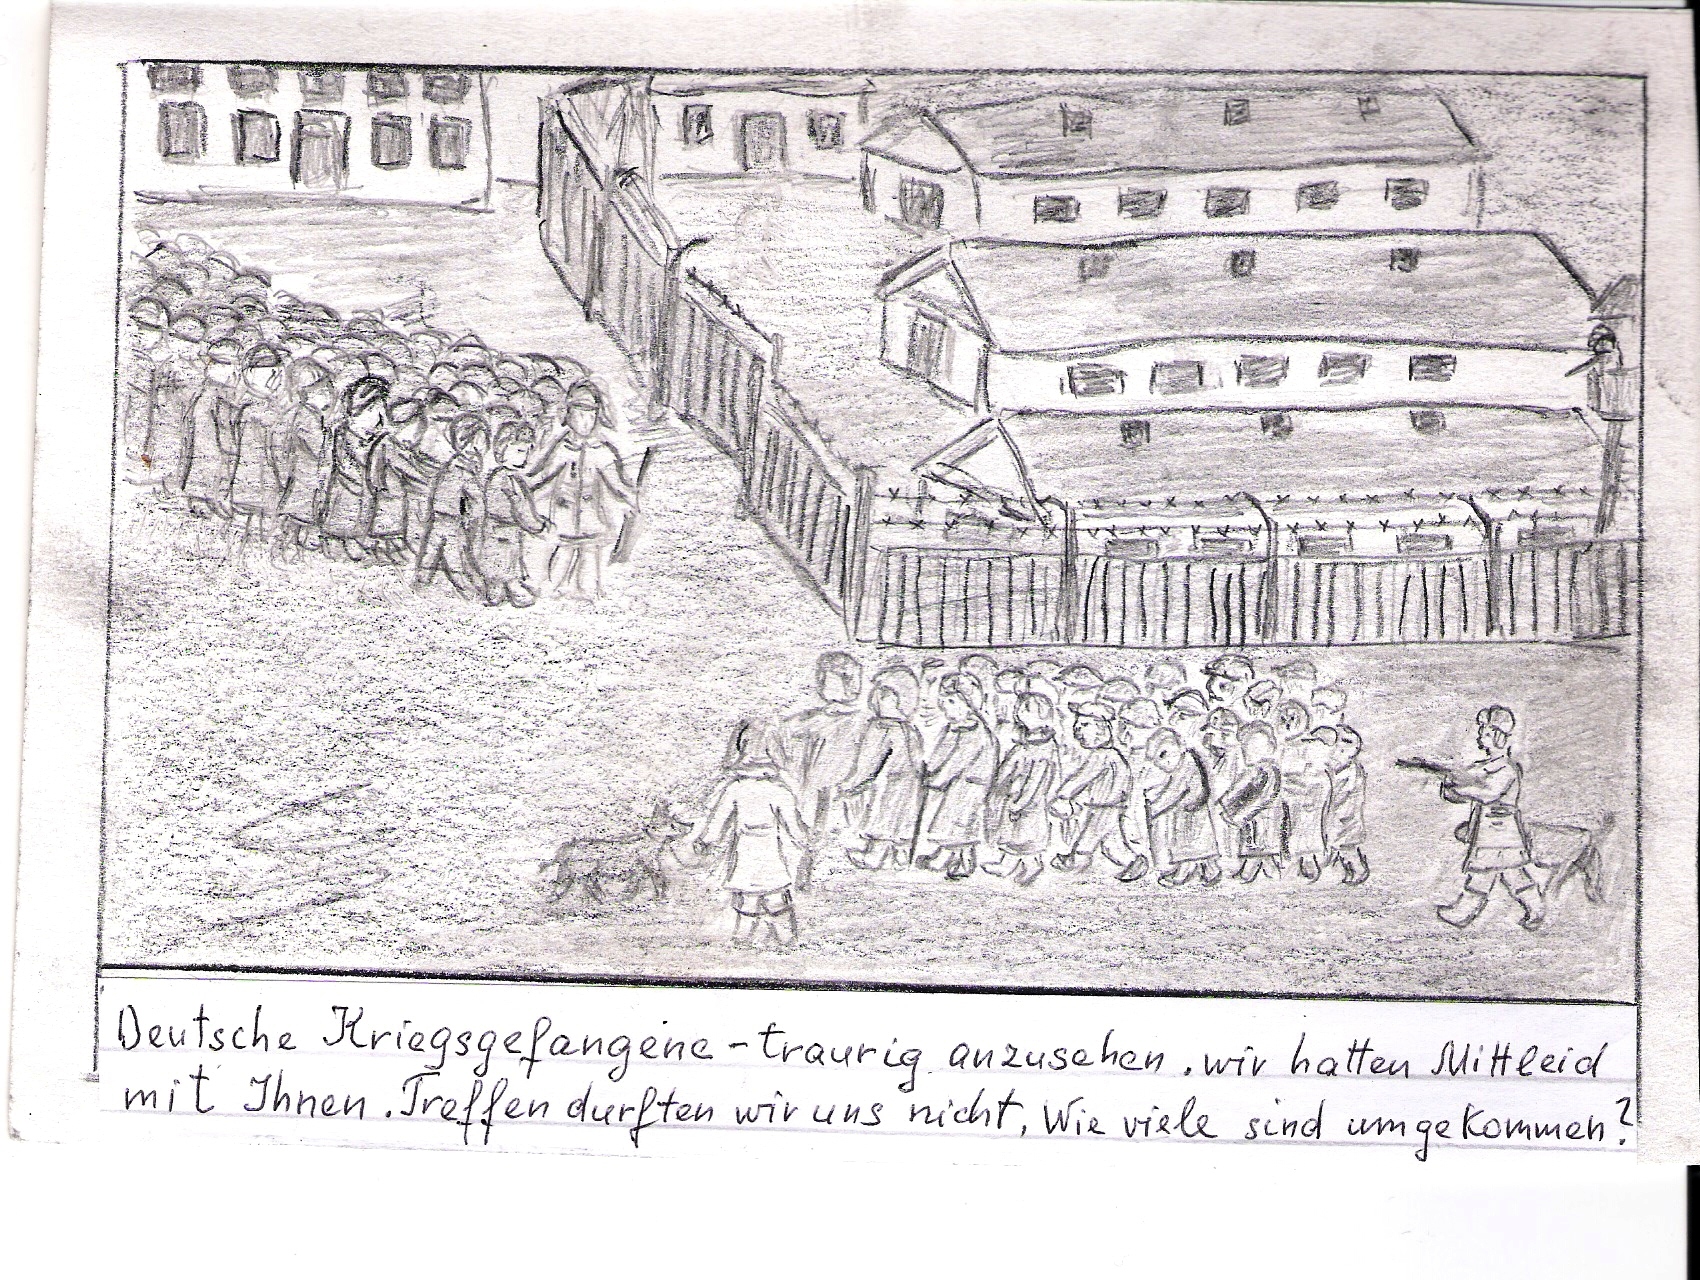 Deutsche Kriegsgefangene - traurig anzusehen. wir hatten Mittleid
mit Ihnen. Treffen durften wir uns nicht, Wie viele sind umgekommen?